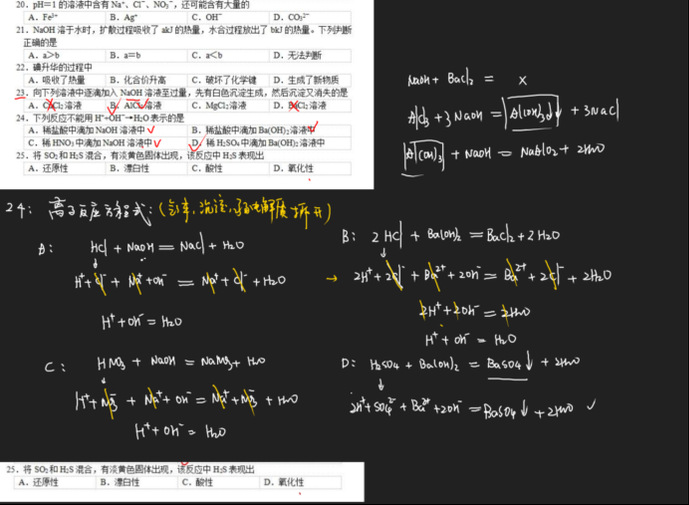 20. pH=1 的溶液中含有 Na⁺、Cl⁻、NO₃⁻，还可能含有大量的
A. Fe³⁺ B. Ag⁺ C. OH⁻ D. CO₃²⁻
21. NaOH 溶于水时，扩散过程吸收了 akJ 的热量，水合过程放出了 bkJ 的热量。下列判断
正确的是
A. a>b B. a=b C. a<b D. 无法判断
22. 碘升华的过程中
A. 吸收了热量 B. 化合价升高 C. 破坏了化学键 D. 生成了新物质
23. 向下列溶液中逐滴加入 NaOH 溶液至过量，先有白色沉淀生成，然后沉淀又消失的是
A. CaCl₂ 溶液 B. AlCl₃ 溶液 C. MgCl₂ 溶液 D. BaCl₂ 溶液
24. 下列反应不能用 H⁺+OH⁻→H₂O 表示的是
A. 稀盐酸中滴加 NaOH 溶液中 ✓ B. 稀盐酸中滴加 Ba(OH)₂ 溶液中
C. 稀 HNO₃ 中滴加 NaOH 溶液中 ✓ D. 稀 H₂SO₄ 中滴加 Ba(OH)₂ 溶液中
25. 将 SO₂ 和 H₂S 混合，有淡黄色固体出现，该反应中 H₂S 表现出
A. 还原性 B. 漂白性 C. 酸性 D. 氧化性
NaOH + BaCl₂ = ×
AlCl₃ + 3NaOH = Al(OH)₃↓ + 3NaCl
Al(OH)₃ + NaOH = NaAlO₂ + 2H₂O
24: 离子反应方程式:(气体,沉淀,弱电解质 拆开)
A: HCl + NaOH = NaCl + H₂O
H⁺ + Cl⁻ + Na⁺ + OH⁻ = Na⁺ + Cl⁻ + H₂O
H⁺ + OH⁻ = H₂O
B: 2HCl + Ba(OH)₂ = BaCl₂ + 2H₂O
→ 2H⁺ + 2Cl⁻ + Ba²⁺ + 2OH⁻ = Ba²⁺ + 2Cl⁻ + 2H₂O
2H⁺ + 2OH⁻ = 2H₂O
H⁺ + OH⁻ = H₂O
C: HNO₃ + NaOH = NaNO₃ + H₂O
H⁺ + NO₃⁻ + Na⁺ + OH⁻ = Na⁺ + NO₃⁻ + H₂O
H⁺ + OH⁻ = H₂O
D: H₂SO₄ + Ba(OH)₂ = BaSO₄↓ + 2H₂O
2H⁺ + SO₄²⁻ + Ba²⁺ + 2OH⁻ = BaSO₄↓ + 2H₂O ✓
25. 将 SO₂ 和 H₂S 混合，有淡黄色固体出现，该反应中 H₂S 表现出
A. 还原性 B. 漂白性 C. 酸性 D. 氧化性